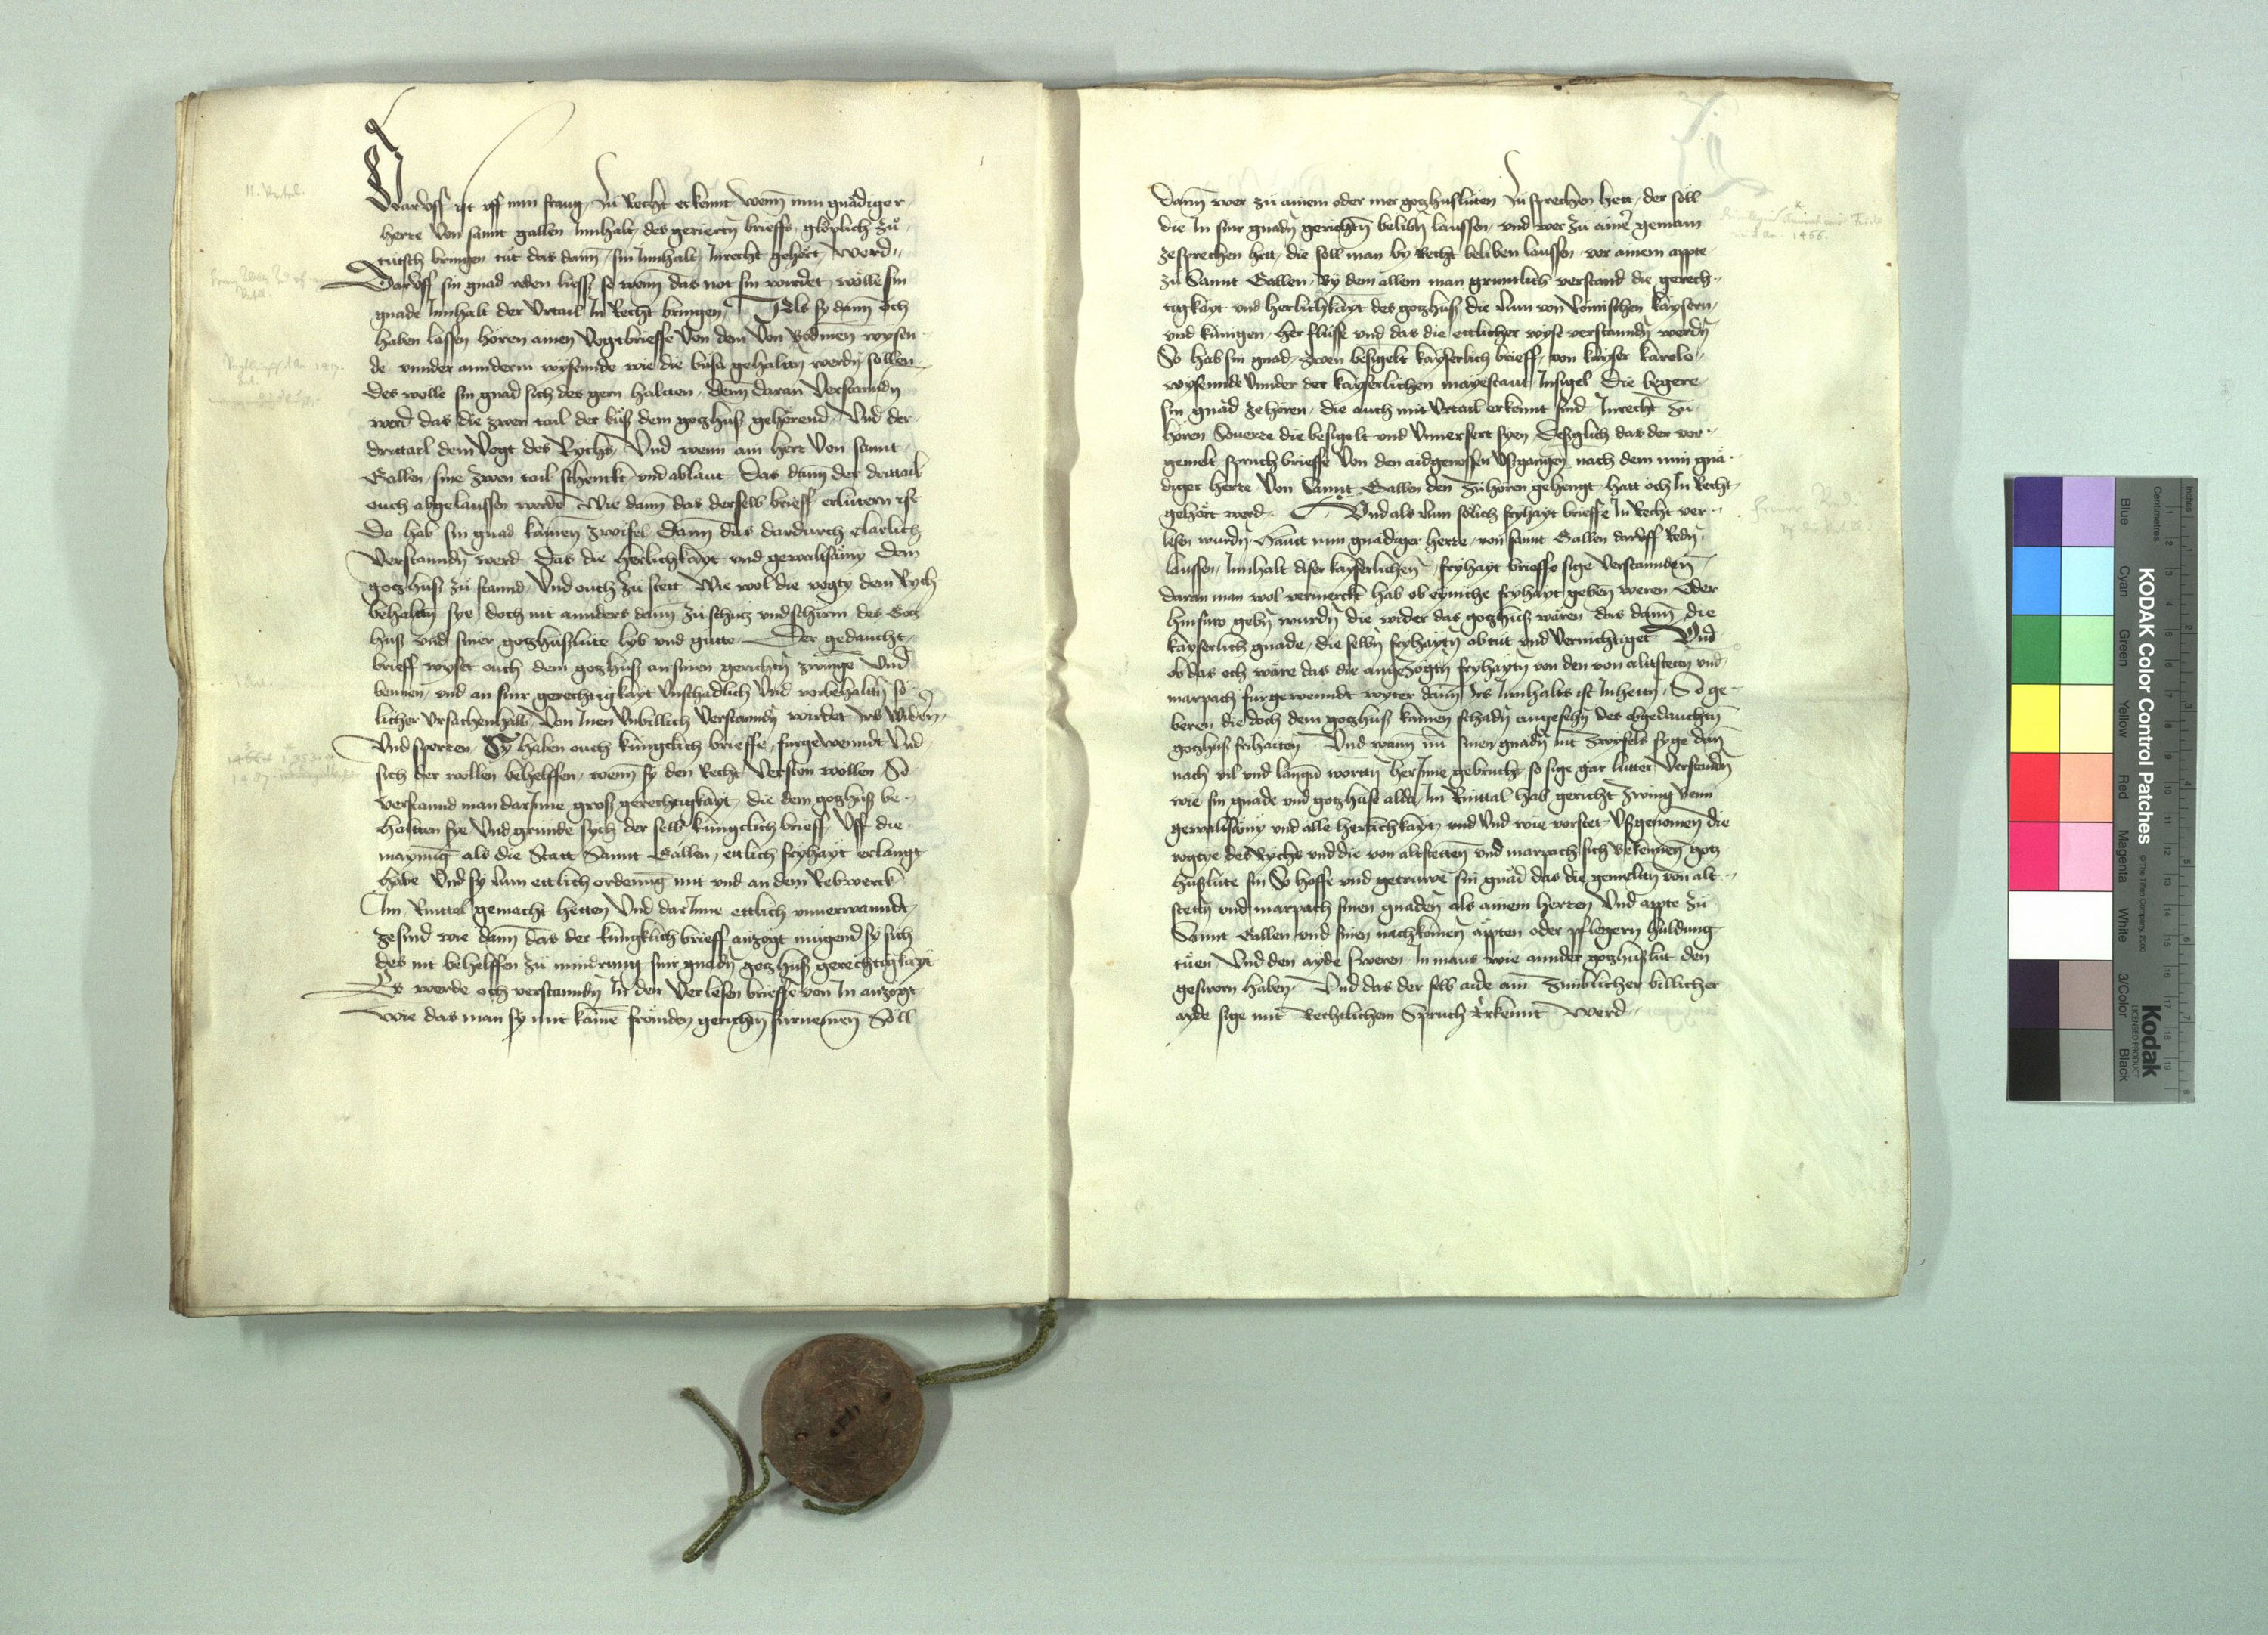 Daruff ist uff min fraug zu Recht erkennt wenn min gnädiger
herre von sannt gallen Innhalt des gerierten brieffs gloplich zů
tütsch bringen tüt das dann sin Innhalt Inrecht gehört werd
Daruff sin gnad reden liess so wenn das not sin wurdet wölle sin
gnade Innhalt der Urtail In Recht bringen Als sy dann och
haben lassen hören ainen Vogtbrieffe von dem von Bodmen wysen
de unnder annderm wysennde wie die büss gehalten werden söllen
des wölle sin gnad sich des gern halten denn daran verstannden
werd das die zwen tail der büss dem gotzhuss gehörend Und der
drittail dem Vogt des Rychs Und wenn ain herr von sannt
Gallen sine zwen tail schenckt und ablaut Das dann der drittail
ouch abgelaussen werde Wie dann das derselb brieff erlütern ist
Da hab sin gnad kainen zwifel dann das dardurch clarlich
verstannden werd das die herlichkayt und gewaltsamy dem
gotzhuss zů stannd Und ouch zů stett Wie wol die vogty dem Rych
behalten sye doch nit annders dann zů schutz und schirm des Gotz
huss und siner gotzhusslüte lyb und gütte Der gedaucht
brieff wyset ouch dem gotzhuss an sinen gerichten zwinge Und
bennen und an sinr gerechtigkayt unschadlich Und vorbehalten so
licher ursachenhalb Von Inen Unbillich verstannden würdet Irs Widern
Und sperren Sy haben ouch küngclich brieffe fürgewenndt Und
sich der wöllen behelffen wenn sy den Recht verston wöllen So
verstannd man darInne gross gerechtigkayt die dem gotzhuss be
haltten sye Und gründe sych der selb küngclich brieff Uff die
maynung als die Statt Sannt Gallen ettlich fryhayt erlangt
habe Und sy Nun ettlich ordnung mit und an dem Rebwerck
Im Rintal gemacht hetten Und darInne ettlich unverwanndt
ze sind wie dann das der küngklich brieff anzögt mügend sy sich
des nit behelffen zů mindrung sinr gnaden gotzhuss gerechtigkayt
Es werde och verstannden In den Verlesen brieffe von In anzögt
wie das man sy mit kaine frömden gerichten fürnemen Söll
dann wer zů ainem oder mer gotzhusslüten Zu sprechen hett der söll
die In sinr gnaden gerichten beliben laussen und wer zu ainer gemain
zesprechen hett die söll man by Recht beliben laussen vor ainem appte
zů Sannt Gallen By dem allem man gruntlich verstand die gerech
tigkayt und herlichkayt des gotzhuss die Nun von Römischen kaysern
und künigen her flüsse und das die ettlicher wyse verstannden werden
So hab sin gnad zwen besigelt kayserlich brieff von kayser karolo
wysennde Unnder der kayserlichen mayestaut Insigel Die begere
sin gnad ze hören die auch mit Urtail erkennt sind Inrecht zu
hören Souerre die besigelt und Unnersert syen Dessglich das der vor
gemelt spruch brieffe von den aidgenossen Ussgangen nach dem min gnä
diger herre von Sannt Gallen den zů hören gehengt hatt och In Recht
gehört werd Und als Nun sölich fryhayt brieffe In Recht ver
lesen wurden Hautt min gnädiger herre von sannt Gallen daruff Reden
laussen Innhalt diser kayserlichen fryhayt brieffe sige verstannden
daran man wol vermerckt hab ob eyniche fryhayt geben weren Oder
hinfüro geben wurden die wider das gotzhuss wären das dann die
kayserlich gnade die selben fryhayten ab tüt und vernichtiget Und
ob das och wäre das die angezögten fryhayten von den von altstetten und
marpach fürgewenndt wyter dann Irs Innhalts ist Inhetten So ge
beren die doch dem gotzhuss kainen schaden angesehen der obgedauchten
gotzhuss frihaiten Und wann nu sinen gnaden nit zwyfels syge dan
nach vil und langen worten herInne gebrucht so sige gar lutter verstanden
wie sin gnade und gotzhuse alda Im Rinttal hab gericht zwing benn
gewaltsamy und alle herlichkayt und Und wie vorstet Ussgenomen die
vogtye des Rychs und die von altstetten und marpach sich bekennen gotz
husslüte sin So hoffe und getruwe sin gnad das die gemelten von alt
stetten und marpach sinen gnaden als ainem herren Und appte zů
Sannt Gallen und sinen nachkomen äppten oder pflegern huldung
tüen Und den ayde sweren In maus wie annder gotzhusslüt den
gesworn haben Und das der selb aide ain zimlicher billicher
ayde sige mit Rechtlichem Spruch Erkennt Werd
KODAK Color Control Patches
Blue Cyan Green Yellow Red Magenta White 3/Color Black
Kodak
LICENSED PRODUCT
Centimetres
Inches
© The Tiffen Company, 2000